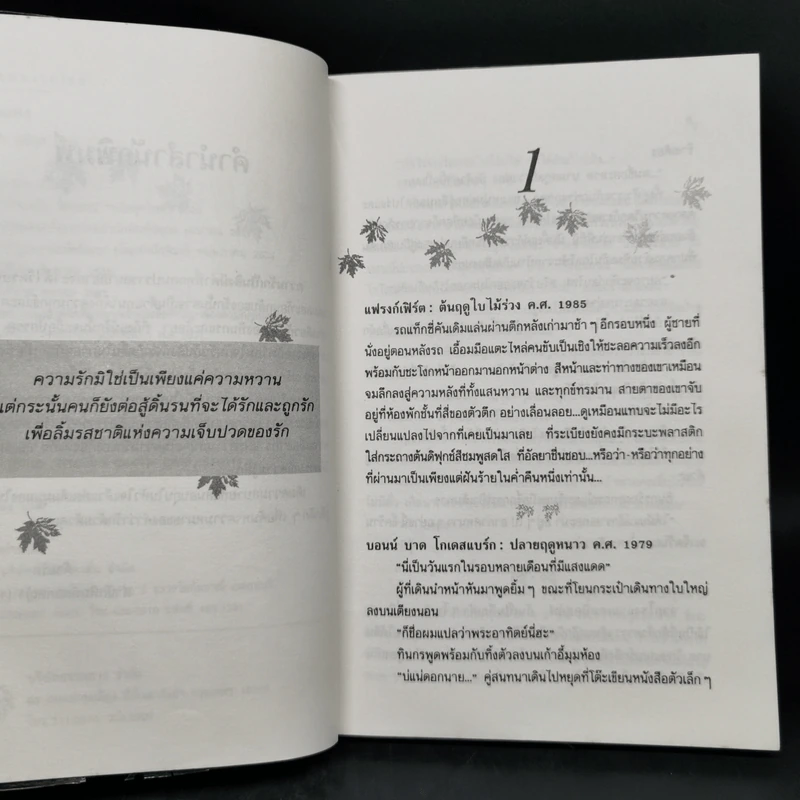 ความรักมิใช่เป็นเพียงแค่ความหวาน
แต่กระนั้นคนก็ยังต่อสู้ดิ้นรนที่จะได้รักและถูกรัก
เพื่อลิ้มรสชาติแห่งความเจ็บปวดของรัก
1
แฟรงก์เฟิร์ต : ต้นฤดูใบไม้ร่วง ค.ศ. 1985
รถแท็กซี่คันเดิมแล่นผ่านตึกหลังเก่ามาช้า ๆ อีกรอบหนึ่ง ผู้ชายที่
นั่งอยู่ตอนหลังรถ เอื้อมมือแตะไหล่คนขับเป็นเชิงให้ชะลอความเร็วลงอีก
พร้อมกับชะโงกหน้าออกมานอกหน้าต่าง สีหน้าและท่าทางของเขาเหมือน
จมลึกลงสู่ความหลังที่ทั้งแสนหวาน และทุกข์ทรมาน สายตาของเขาจับ
อยู่ที่ห้องพักชั้นที่สี่ของตัวตึก อย่างเลื่อนลอย...ดูเหมือนแทบจะไม่มีอะไร
เปลี่ยนแปลงไปจากที่เคยเป็นมาเลย ที่ระเบียงยังคงมีกระบะพลาสติก
ใส่กระถางต้นดิฟุกซ์สีชมพูสดใส ที่อัลยาชื่นชอบ...หรือว่า-หรือว่าทุกอย่าง
ที่ผ่านมาเป็นเพียงแต่ฝันร้ายในค่ำคืนหนึ่งเท่านั้น...
บอนน์ บาด โกเดสแบร์ก : ปลายฤดูหนาว ค.ศ. 1979
"นี่เป็นวันแรกในรอบหลายเดือนที่มีแสงแดด"
ผู้ที่เดินนำหน้าหันมาพูดยิ้ม ๆ ขณะที่โยนกระเป๋าเดินทางใบใหญ่
ลงบนเตียงนอน
"ก็ชื่อผมแปลว่าพระอาทิตย์นี่ฮะ"
ทินกรพูดพร้อมกับทิ้งตัวลงบนเก้าอี้มุมห้อง
"บ่แน่ดอกนาย..." คู่สนทนาเดินไปหยุดที่โต๊ะเขียนหนังสือตัวเล็ก ๆ